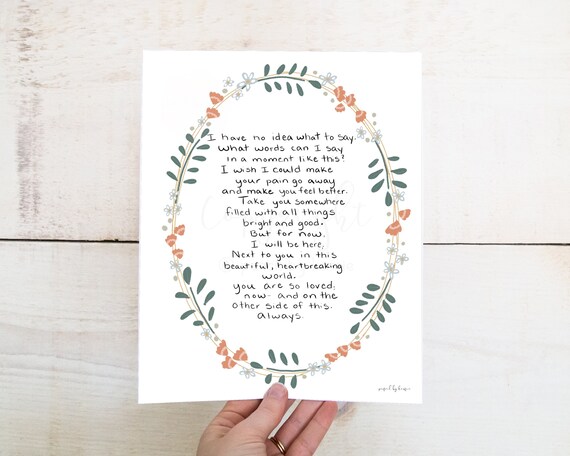 I have no idea what to say.
What words can I say
in a moment like this?
I wish I could make
your pain go away
and make you feel better.
Take you somewhere
filled with all things
bright and good.
But for now,
I will be here,
Next to you in this
beautiful, heartbreaking
world.
you are so loved;
now- and on the
other side of this.
Always.